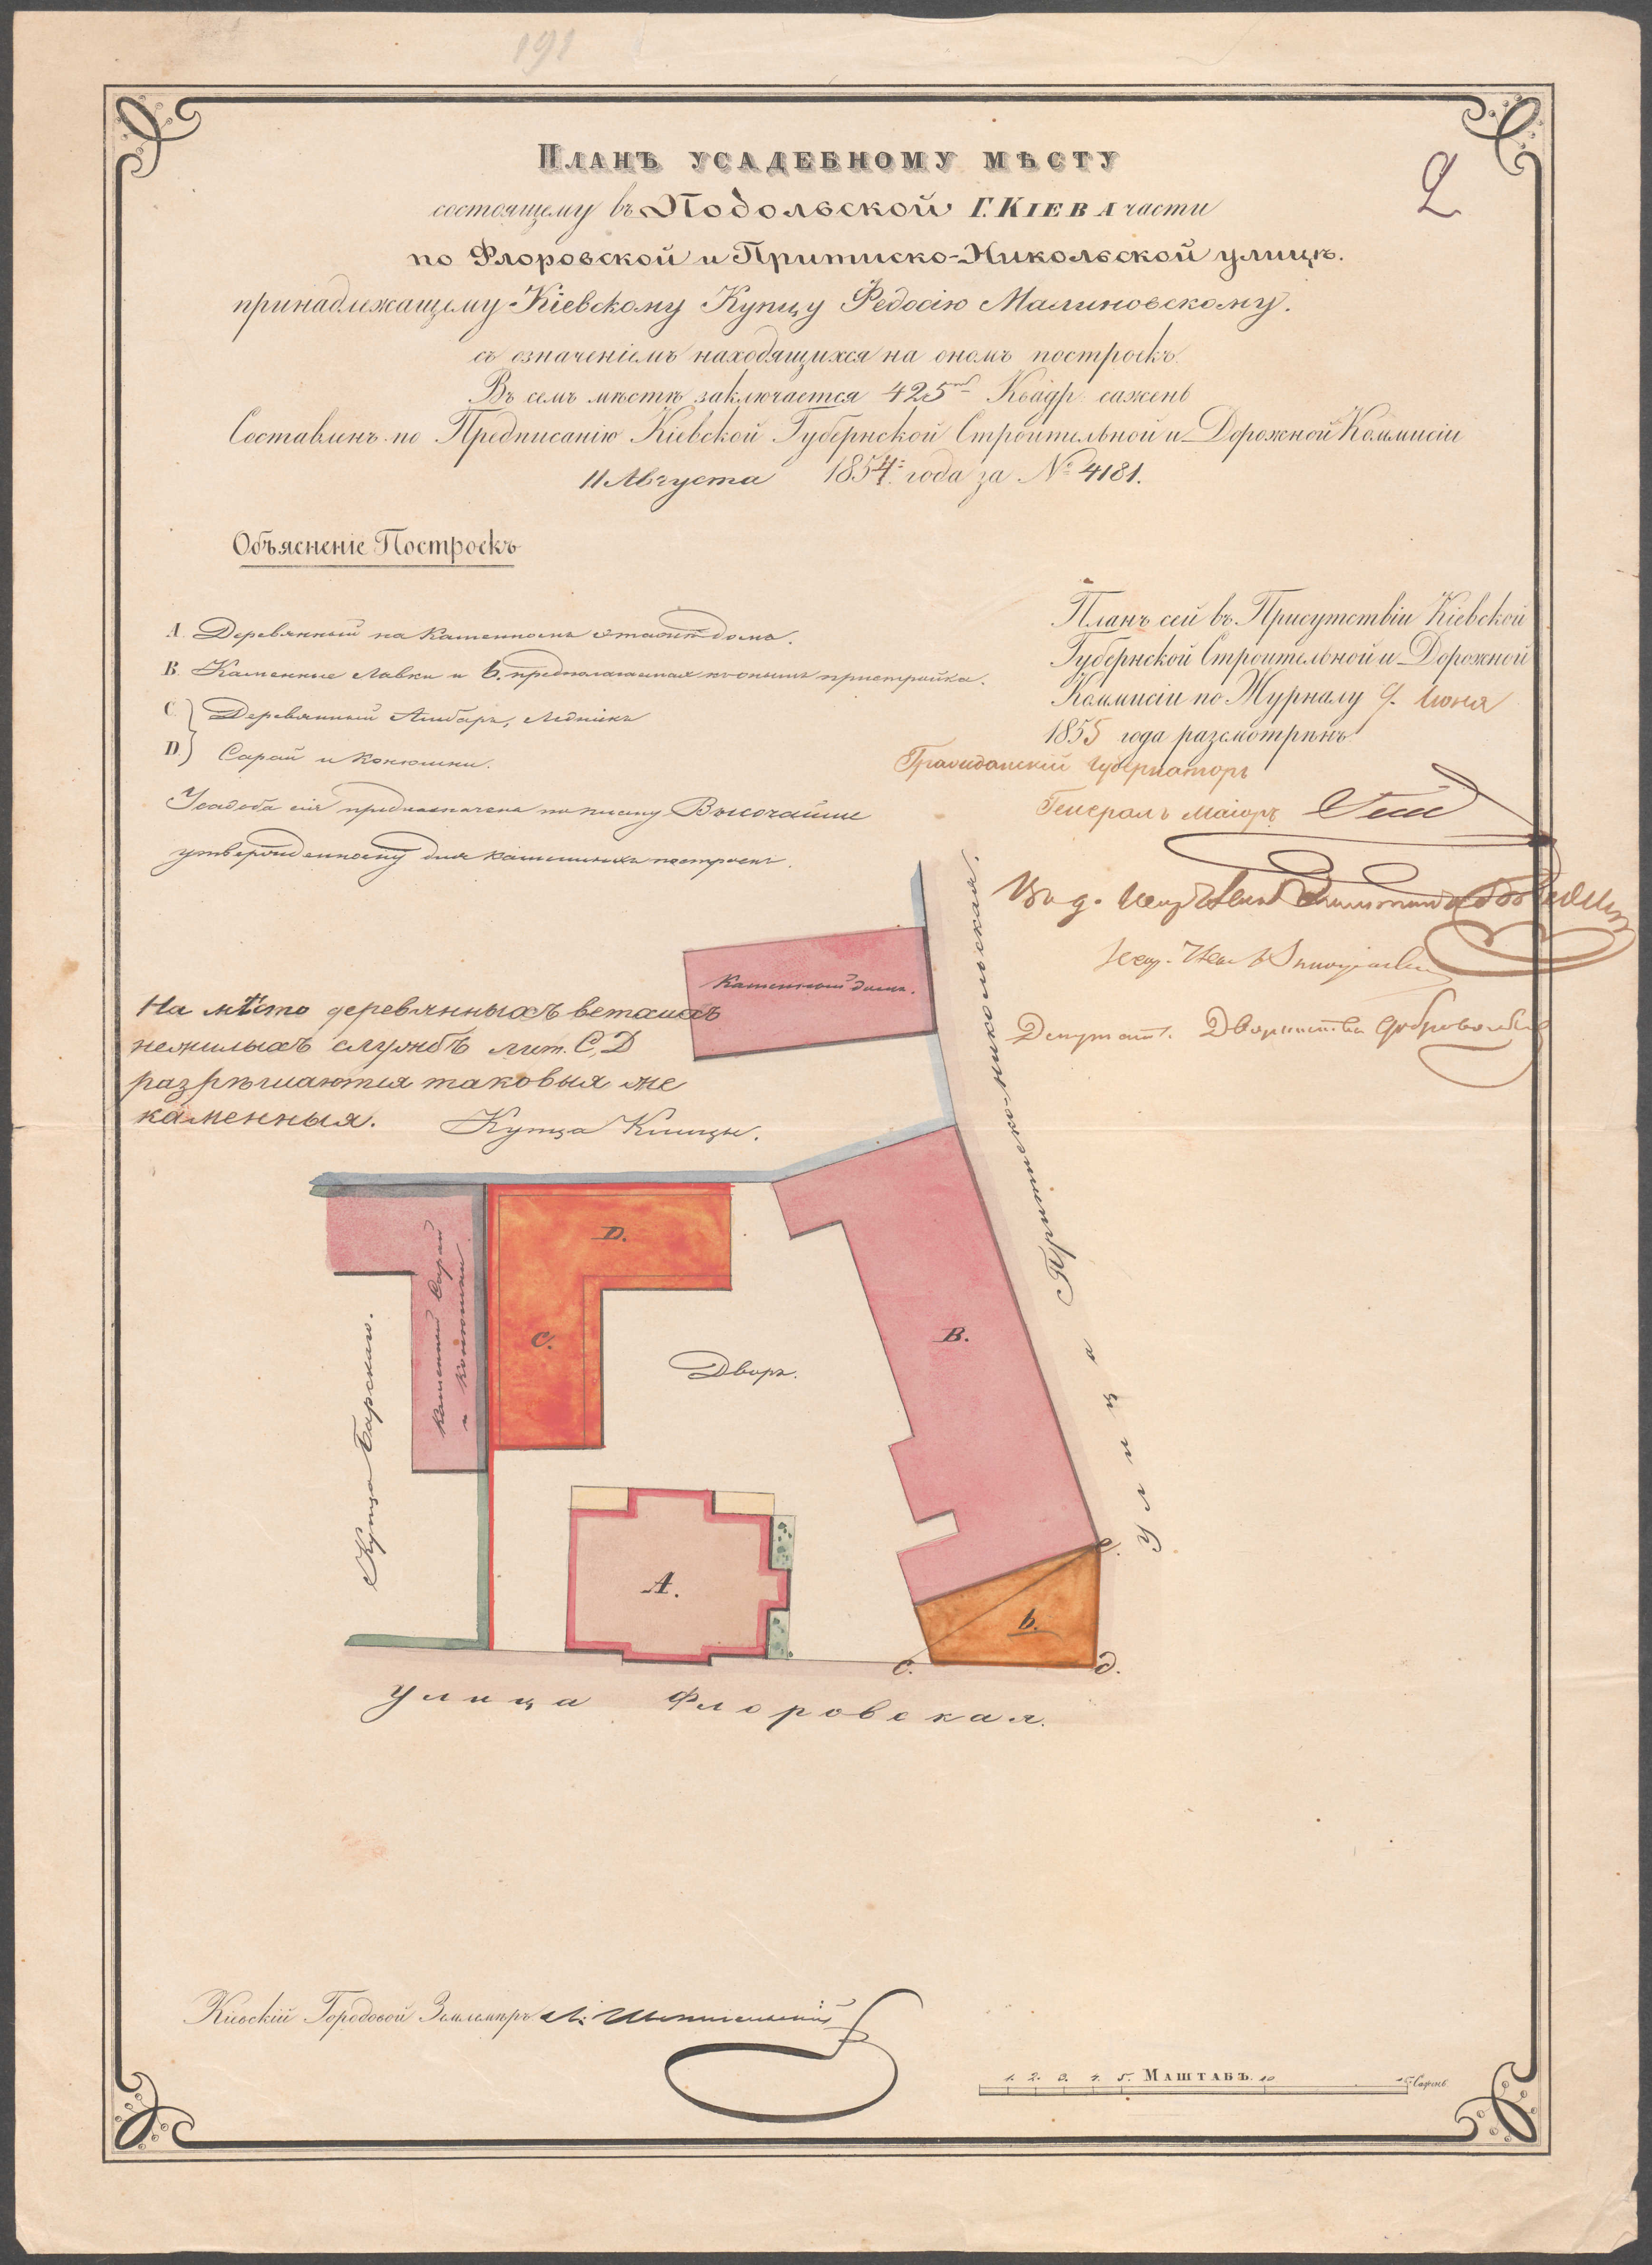 191
2
Планъ усадебному мѣсту
состоящему въ Подольской Г. Кіева части
по Флоровской и Притиско-Никольской улицѣ.
принадлежащему Кіевскому Купцу Федосію Малиновскому.
съ означеніемъ находящихся на ономъ построекъ.
Въ семъ мѣстѣ заключается 425 Квадр. сажень
Составленъ по Предписанію Кіевской Губернской Строительной и Дорожной Коммисіи
11 Августа 1854 года за № 4181.
Объясненіе Построекъ
A. Деревянный на каменномъ этажѣ домъ.
B. Каменные Лавки и b. предполагаемая къ онымъ пристройка.
C. Деревянный Амбаръ, Ледникъ
D. Сарай и конюшни.
Усадьба сія предназначена по плану Высочайше
утвержденному для каменныхъ построекъ.
Планъ сей въ Присутствіи Кіевской
Губернской Строительной и Дорожной
Коммисіи по Журналу 9. Іюня
1855 года разсмотрѣнъ.
Гражданскій Губернаторъ
Генералъ Маіоръ
Депутатъ Дворянства
На мѣсто деревянныхъ ветхихъ
нежилыхъ службъ лит. C, D
разрѣшаются таковыя же
каменныя.
Каменный домъ.
Притиско-никольская.
Улица
Купца Климы.
Купца Барскаго.
каменный сарай
и конюшни
D.
C.
B.
Дворъ.
A.
b.
e.
c.
d.
улица Флоровская.
Кіевскій Городовой Землемѣръ
1. 2. 3. 4. 5. Маштабъ. 10 15 Сажень